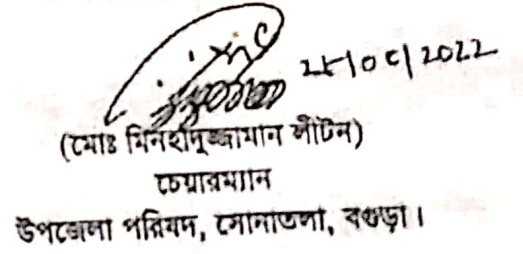 (মোঃ মিনহাদুজ্জামান লীটন)
চেয়ারম্যান
উপজেলা পরিষদ, সোনাতলা, বগুড়া।